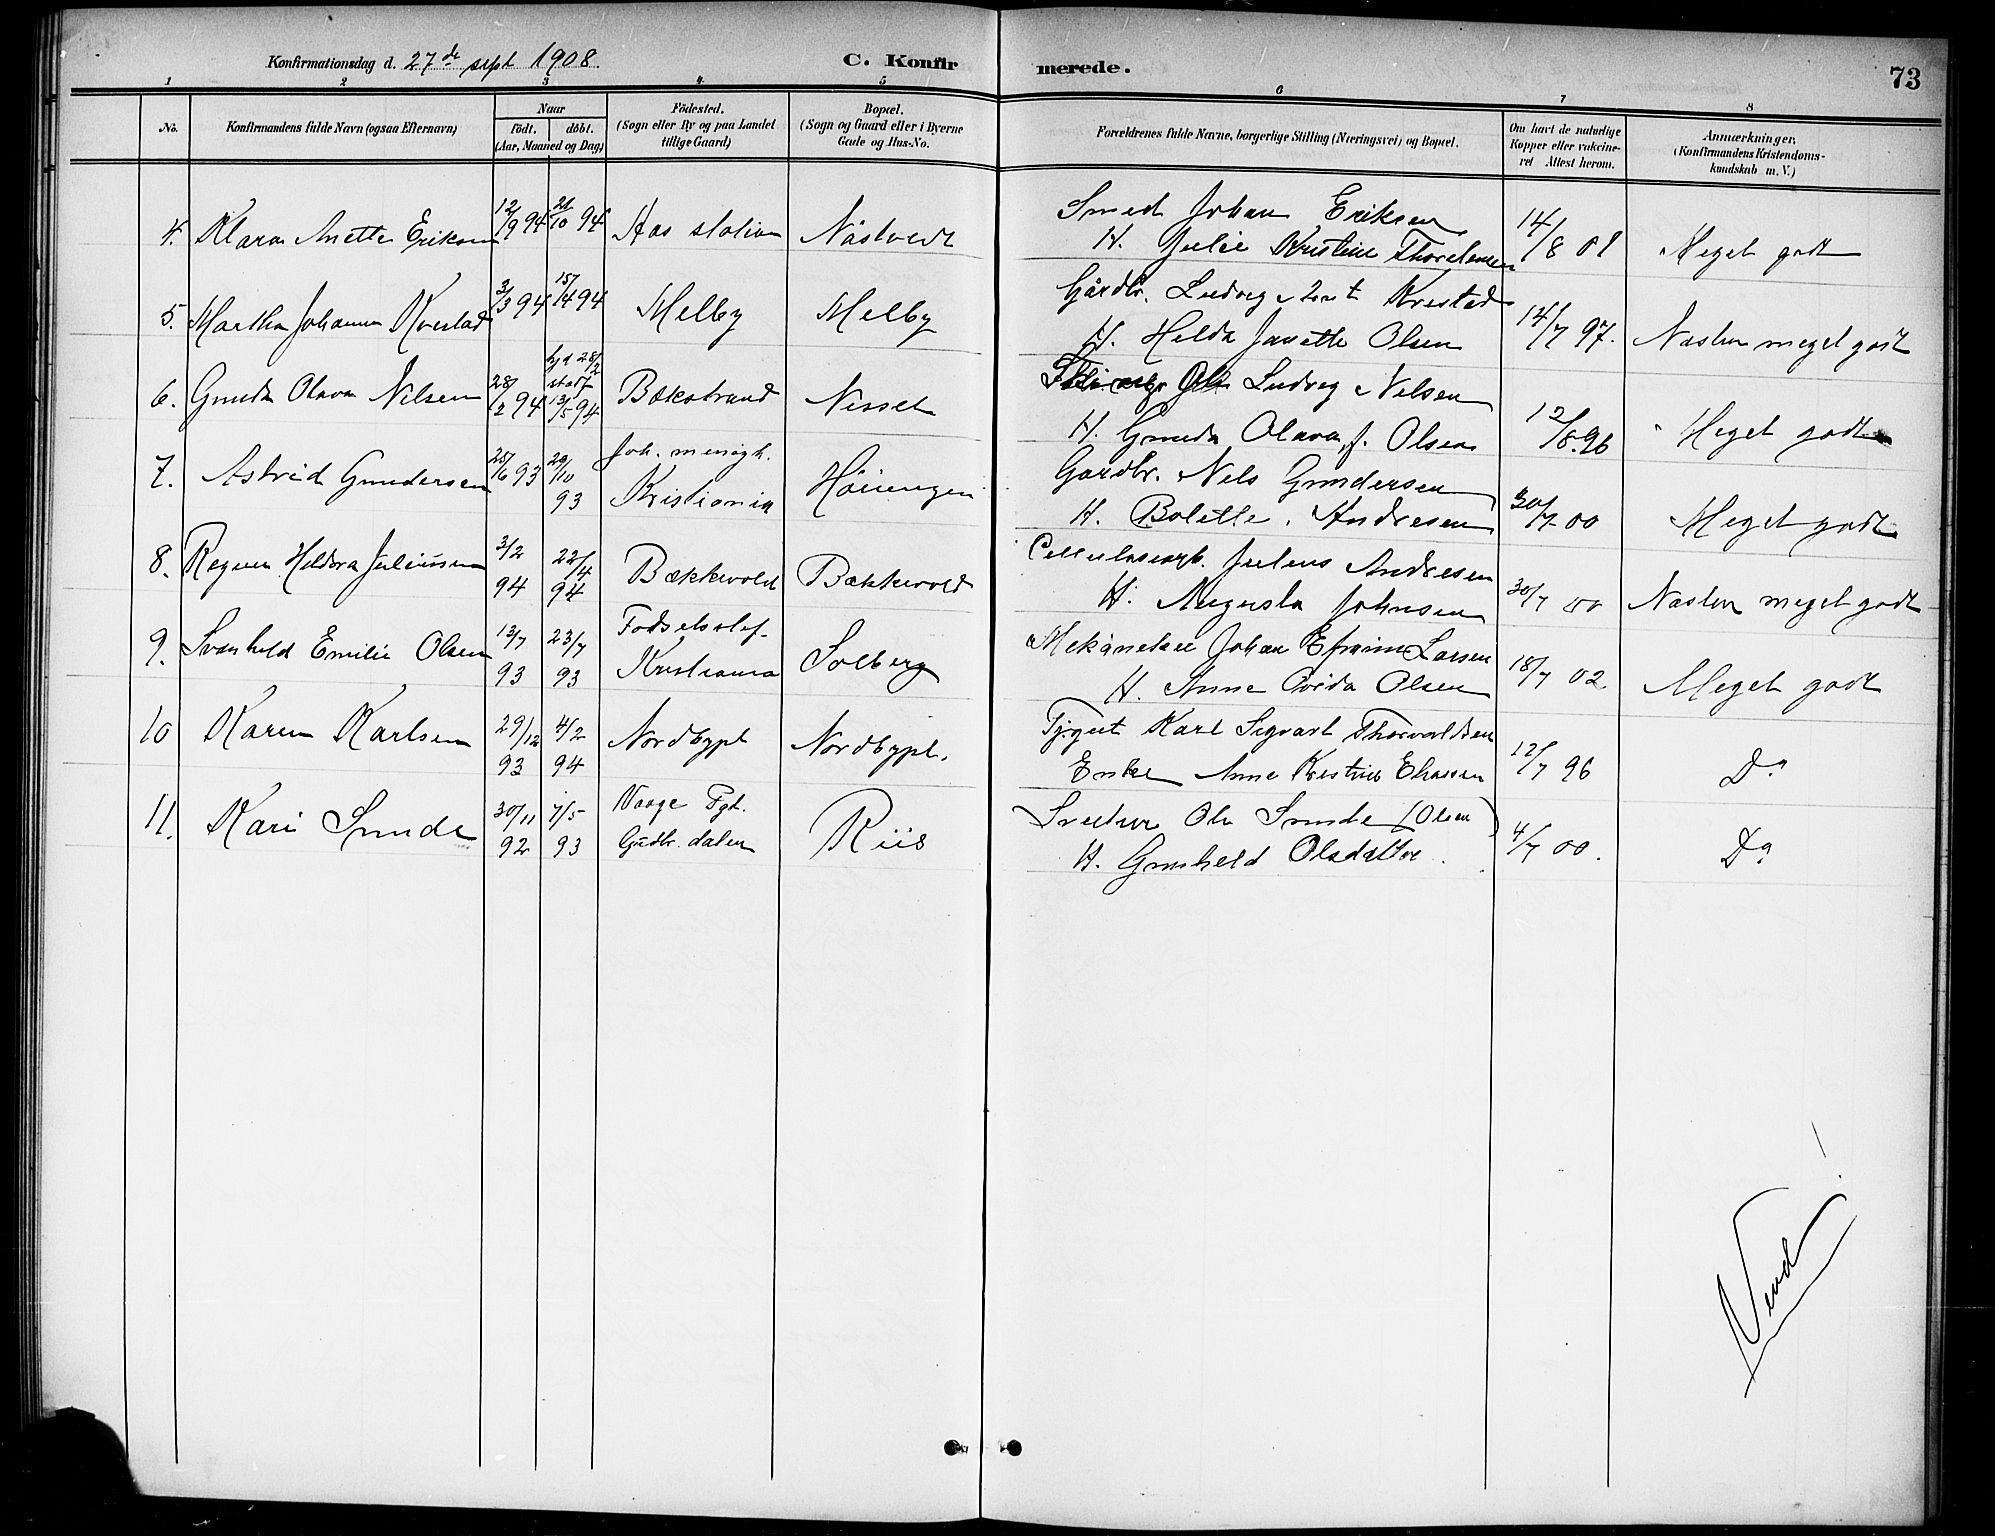 Konfirmationsdag d. 27de sept 1908.
C. Konfirmerede.
73
1 2 3 4 5 6 7 8
No.
Konfirmandens fulde Navn (ogsaa Efternavn)
Naar
født. døbt.
(Aar, Maaned og Dag)
Födested.
(Sogn eller By og paa Landet
tillige Gaard)
Bopæl.
(Sogn og Gaard eller i Byerne
Gade og Hus-No.
Forældrenes fulde Navne, borgerlige Stilling (Næringsvei) og Bopæl.
Om havt de naturlige
Kopper eller vakcine-
ret Attest herom.
Anmærkninger,
(Konfirmandens Kristendoms-
kundskab m. V.)
4. Klara Anette Eriksen 12/9 94 21/10 94 Aas station Nästvedt Smed Johan Eriksen 14/8 01 Meget godt
H. Julie Kristine
5. Martha Johanna Kvestad 3/3 94 15/4 94 Melby Melby Gårdbr. Ludvig Kvestad 14/7 97. Næsten meget godt
H. Hilda Janette Olsen
6. Gunda Olava Nilsen 28/2 94 hjd 28/2 stadf 13/5 94 Bækstrand Nesset Ludvig Nilsen 12/8 96 Meget godt
H. Gunda Olava f. Olsen
7. Astrid Gundersen 25/6 93 29/10 93 Joh. menigh. Kristiania Gardbr. Nils Gundersen 30/7 00 Meget godt
H. Bolette Andresen
8. Ragna Heldora Juliussen 3/2 94 22/4 94 Bækkevold Bækkevold Cellulosearb. Julius Andresen 30/7 00 Næsten meget godt
H. Augusta Johnsen
9. Svanhild Emilie Olsen 13/7 93 23/7 93 Fødselsstif. Kristiania Solberg Johan Efraim Larsen 18/7 02 Meget godt
H. Anne Olsen
10 Karen Karlsen 29/12 93 4/2 94 Nordbypl Nordbypl. Karl Sigvart Thorvaldsen 12/7 96 Do
Enke Anne Kristine
11. Kari Sunde 30/11 92 7/5 93 Vaage Pgd. Gudbr. dalen Riis Ole Sunde (Olsen) 4/7 00. Do
H. Gunhild Olsdatter.
Vend!